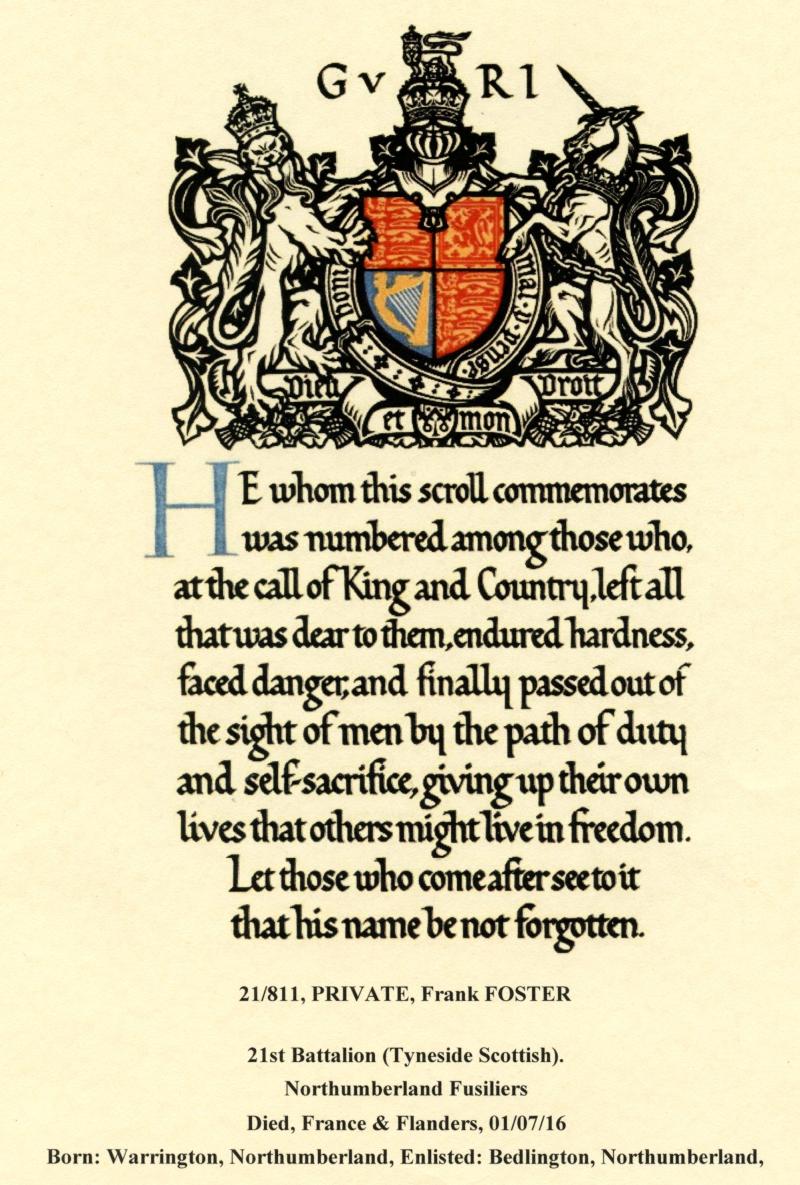 G V R I
HONI
mal·y·pense
Dieu
Droit
et
mon
HE whom this scroll commemorates
was numbered among those who,
at the call of King and Country, left all
that was dear to them, endured hardness,
faced danger, and finally passed out of
the sight of men by the path of duty
and self-sacrifice, giving up their own
lives that others might live in freedom.
Let those who come after see to it
that his name be not forgotten.
21/811, PRIVATE, Frank FOSTER
21st Battalion (Tyneside Scottish).
Northumberland Fusiliers
Died, France & Flanders, 01/07/16
Born: Warrington, Northumberland, Enlisted: Bedlington, Northumberland,